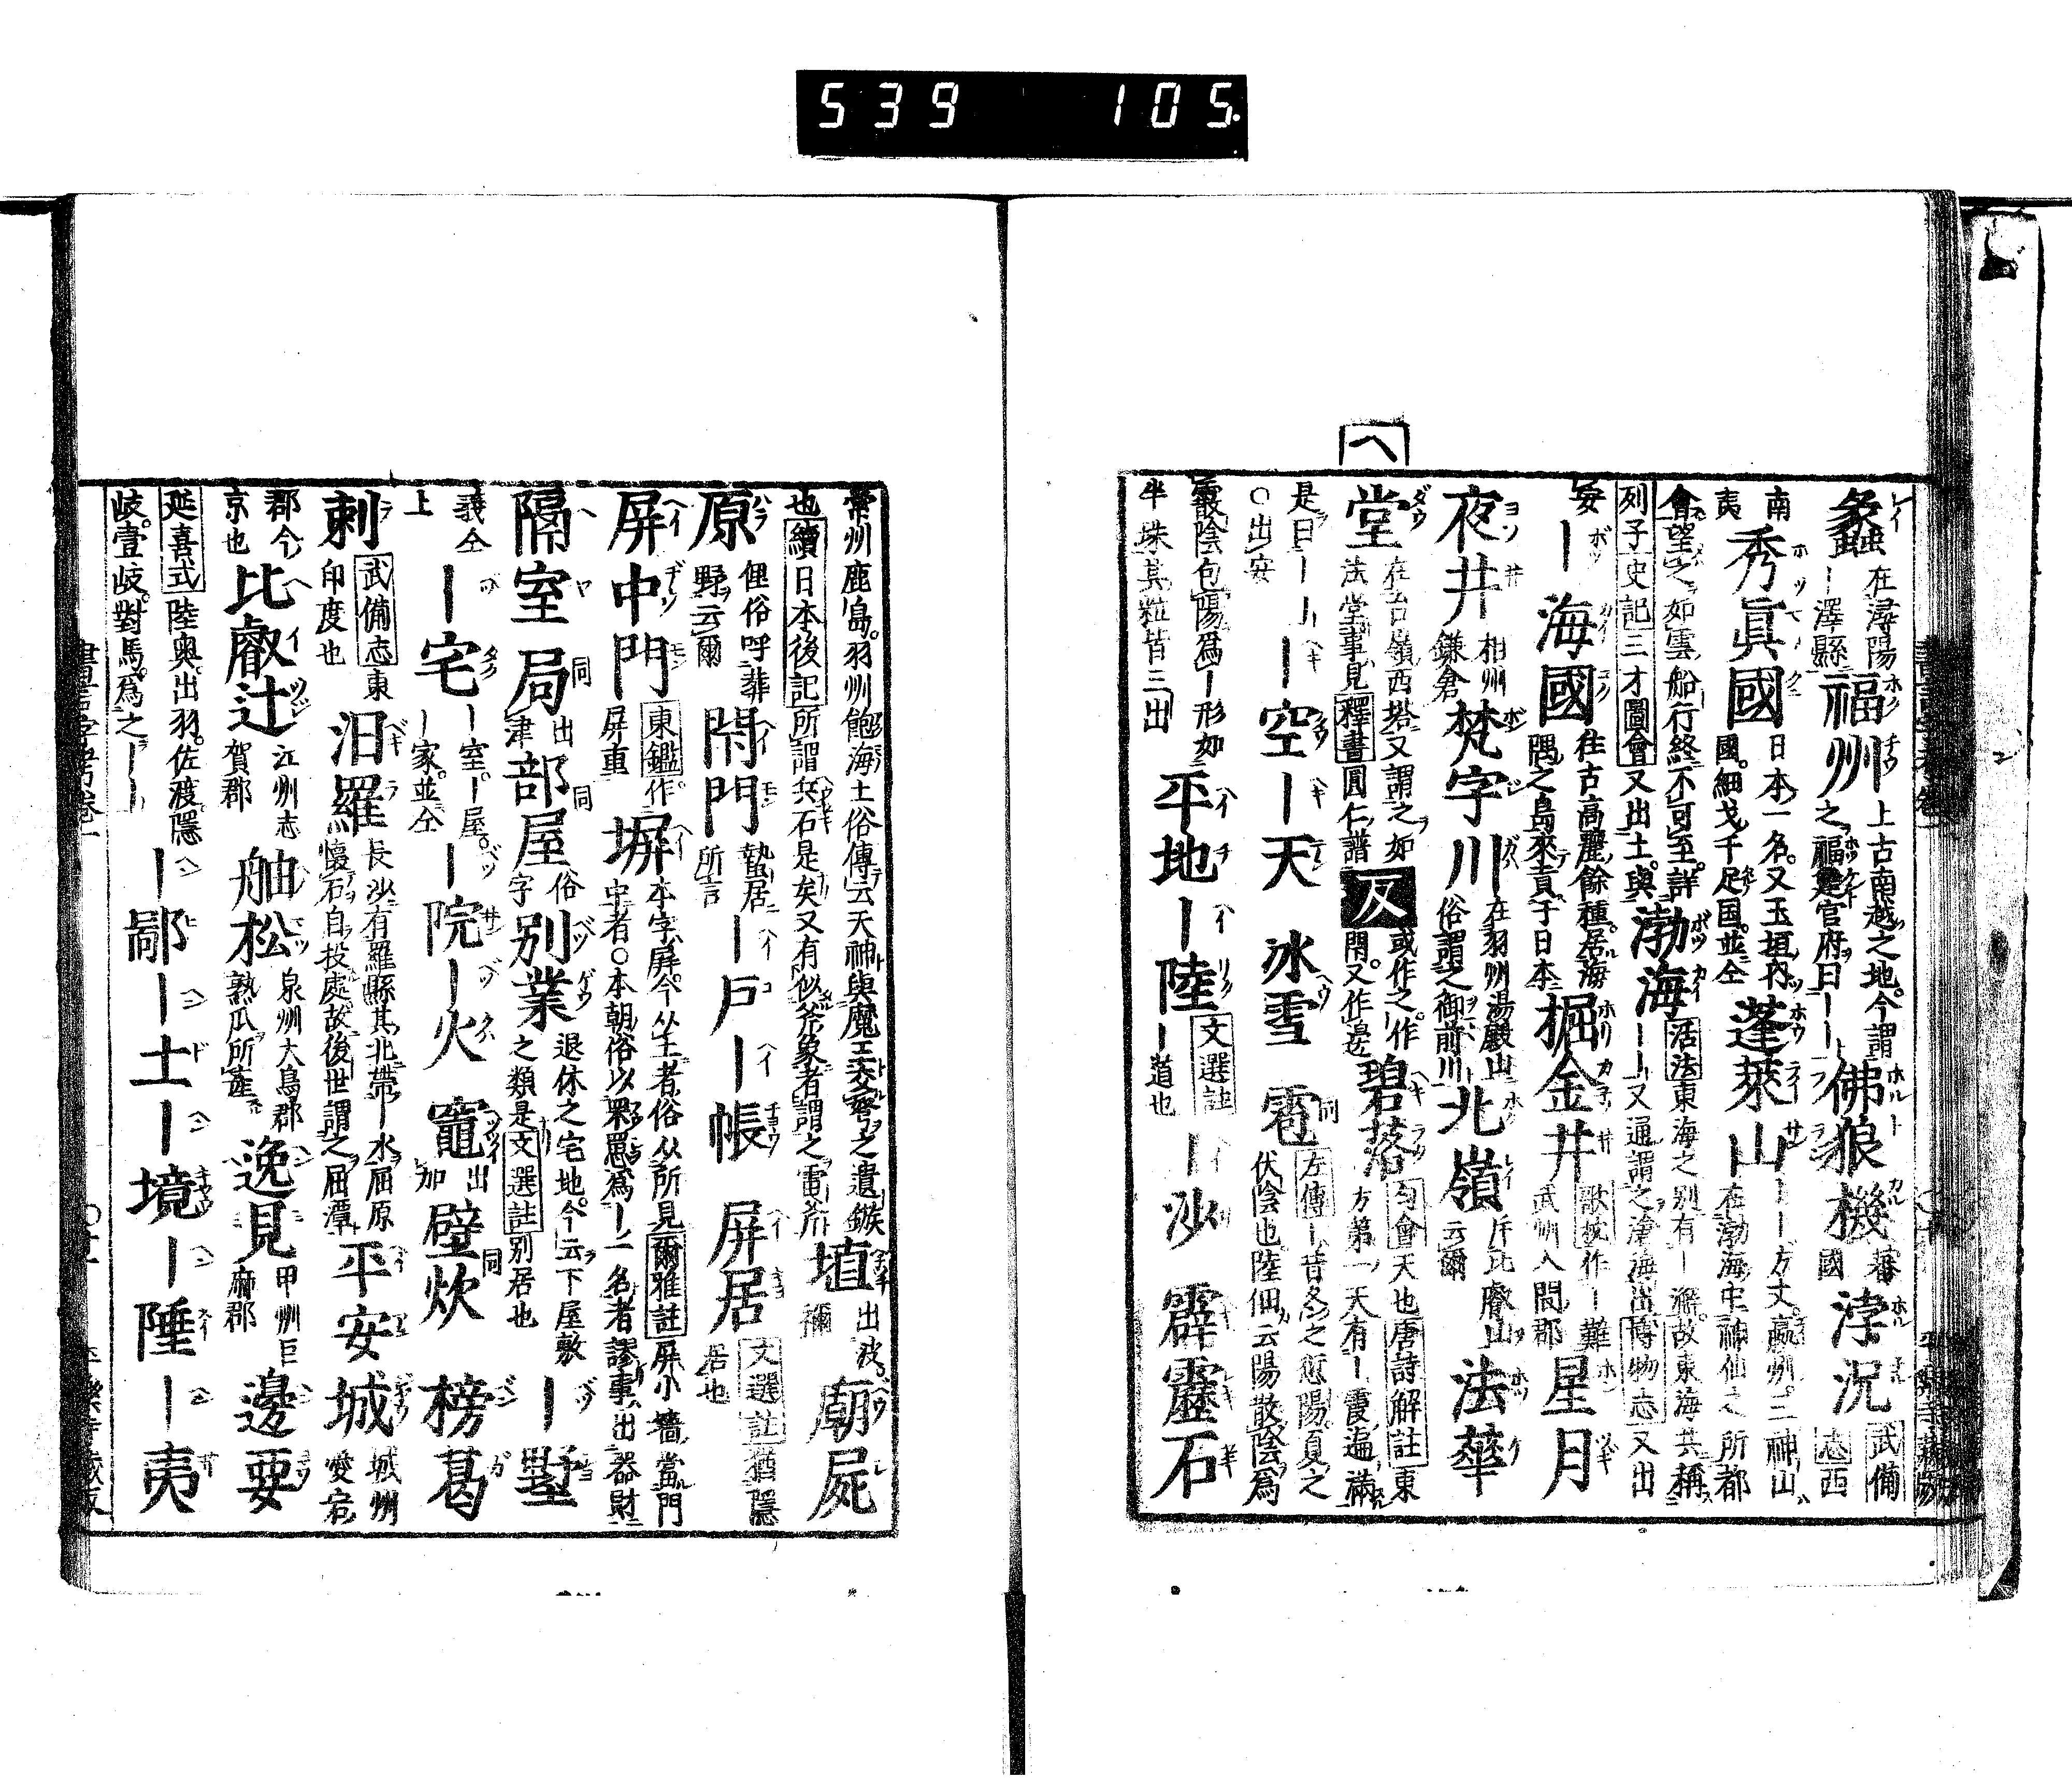 539 105.
蠡 在潯陽 ー澤縣 福州 上古南越之地。今謂之福建官府曰ーー 佛狼機 蕃國 渟況 武備志西
南夷 秀眞國 日本一名。又玉垣内國。細戈千足国。並仝 蓬萊山 ーー方丈。瀛州。三神山在渤海中神仙之所都
會望之如雲船行終不可至。詳列子史記三才圖會又出土。與 渤海 活法東海之別有ー澥。故東海共稱ーー又通謂之滄海出博物志又出
安 ー海國 往古高麗餘種。居海隅之島來貢于日本 堀金井 歌枕作ー難武州入間郡 星月
夜井 相州鎌倉 梵字川 在羽州湯殿山俗謂之御前川 北嶺 斥比叡山云爾 法華
ヘ
堂 在台嶺西塔又謂之如法堂事見釋書圓仁譜 反 或作之。作閇。又作邊 碧落 匀會天也唐詩解註東方第一天有ー霞遍滿
是曰ーー ○出安 ー空 ー天 冰雪 雹 左傳ー昔冬之愆陽。夏之伏陰也陸佃云陽散陰爲
霰陰包陽爲ー形如半珠其粒皆三出 平地 ー陸 文選註ー道也 ー沙 霹靂石
常州鹿島。羽州飽海土俗傳云天神與魔王交弩之遺鏃也續日本後記所謂兵石是矣又有似斧象者謂之雷斧 埴 出波禰 廟屍
原 俚俗呼葬野云爾 閇門 蟄居所言 ー戸 ー帳 屏居 文選註猶隱居也
屏中門 東鑑作屏重 塀 本字屏。今从土者俗从所見爾雅註屏小墻當門中者○本朝俗以罘罳爲ー一名者謬事出器財
隔室 局 出津 部屋 俗字 別業 退休之宅地。今云下屋敷之類是文選註別居也 ー墅
義仝上 ー宅 ー室。ー屋。ー家。並仝 ー院 ー火 竈 出加 壁炊 榜葛
剌 武備志東印度也 汨羅 長沙有羅縣其北帶ー水屈原懷石自投處故後世謂之屈潭 平安城 城州愛宕
郡今京也 比叡辻 江州志賀郡 舳松 泉州大鳥郡熟瓜所產 逸見 甲州巨麻郡 邊要
延喜式陸奥。出羽。佐渡。隱岐。壹岐。對馬。爲之ーー ー鄙 ー土 ー境 ー陲 ー夷